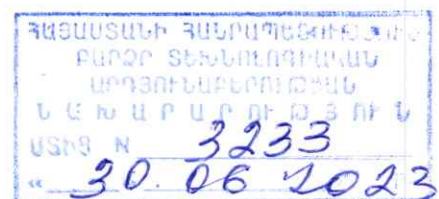 ՀԱՅԱՍՏԱՆԻ ՀԱՆՐԱՊԵՏՈՒԹՅՈՒՆ
ԲԱՐՁՐ ՏԵԽՆՈԼՈԳԻԱԿԱՆ
ԱՐԴՅՈՒՆԱԲԵՐՈՒԹՅԱՆ
ՆԱԽԱՐԱՐՈՒԹՅՈՒՆ
ՍՏԻՑ N 3233
« 30. 06 2023